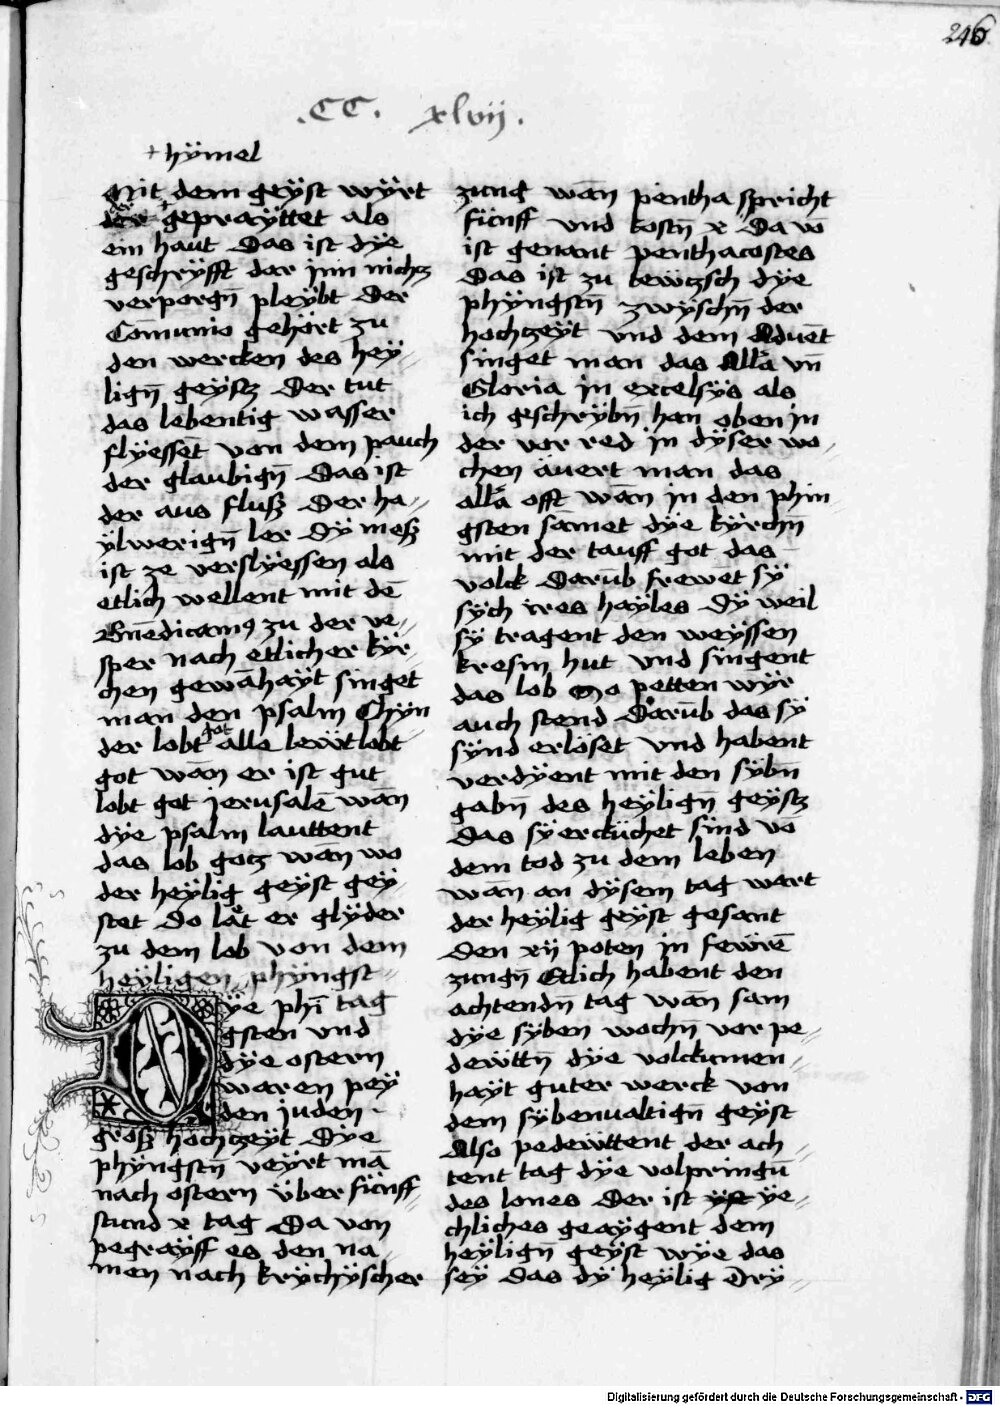 246
.CC. xlvii.
+ hÿmel
Mit dem geÿst wÿrt
der geprayttet als
ein haut Das ist dÿe
geschrÿfft der inn nichtz
verporgn̄ pleÿbt Der
Cōmunio gehört zu
den wercken des heÿ„
lign̄ geÿstz Der tut
das lebentig wasser
flÿessēt von dem pauch
der glaubign̄ Das ist
der aus fluß Der ha„
ÿlwerign̄ ler Dÿ meß
ist ze verslÿessen als
etlich wellent mit dē
Bn̄edicamꝰ zu der ve„
sper nach etlicher kÿr„
chen gewāhaÿt singet
man den psalm Chÿn
der lobt got alle lewt lobt
got wān er ist gut
lobt got jerusalē wān
dÿe psalm lauttent
das lob gotz wān wo
der heÿlig geÿst geÿ„
stet Do lät er glÿder
zu dem lob von dem
heÿligen phÿngst„
Dÿe phī tag
gsten vnd
dÿe ostern
waren peÿ
den juden
groß hochzeÿt Dÿe
phÿngstn̄ veÿrt mā
nach ostern über fünff„
stund x tag Da von
pegraÿff es den na„
men nach krÿchÿscher
zung wān pentha spricht
fünff vnd kostn̄ x Da vō
ist genant penthacostes
Das ist zu tewtzsch dÿe
phÿngstn̄ zwÿschn̄ der
hochzeÿt vnd dem Aduēt
singet man das Alla vn̄
Gloria in excelsÿs als
ich geschrÿbn̄ han oben in
der vor red in dÿser wo„
chen äuert man das
alla offt wān in den phin„
gsten sāmet dÿe kÿrchn̄
mit der tauff got das
volck Darūb frewēt sÿ
sÿch ires hayles Dÿ weil
sÿ tragent den weÿssen
kresm hut vnd singent
das lob So petten wÿr
auch stend Darūb das sÿ
sÿnd erlöset vnd habent
verdÿent mit den sÿbn̄
gabn̄ des heÿlign̄ geÿstz
Das sÿ erckücket sind vō
dem tod zu dem leben
wān an dÿsem tag wart
der heÿlig geÿst gesant
Den xij poten in fewrē
zungn̄ Etlich habent den
achtendn̄ tag wān sam
dÿe sÿben wochn̄ vor pe„
dewttn̄ dÿe volckumen„
haÿt guter werck von
dem sÿbenualtign̄ geÿst
Also pedewttent der ach„
tent tag dÿe volpringū
des lones Der ist ÿe„
chliches geaÿgent dem
heÿlign̄ geÿst wÿe das
seÿ Das dÿ heÿlig drÿ„
Digitalisierung gefördert durch die Deutsche Forschungsgemeinschaft - DFG